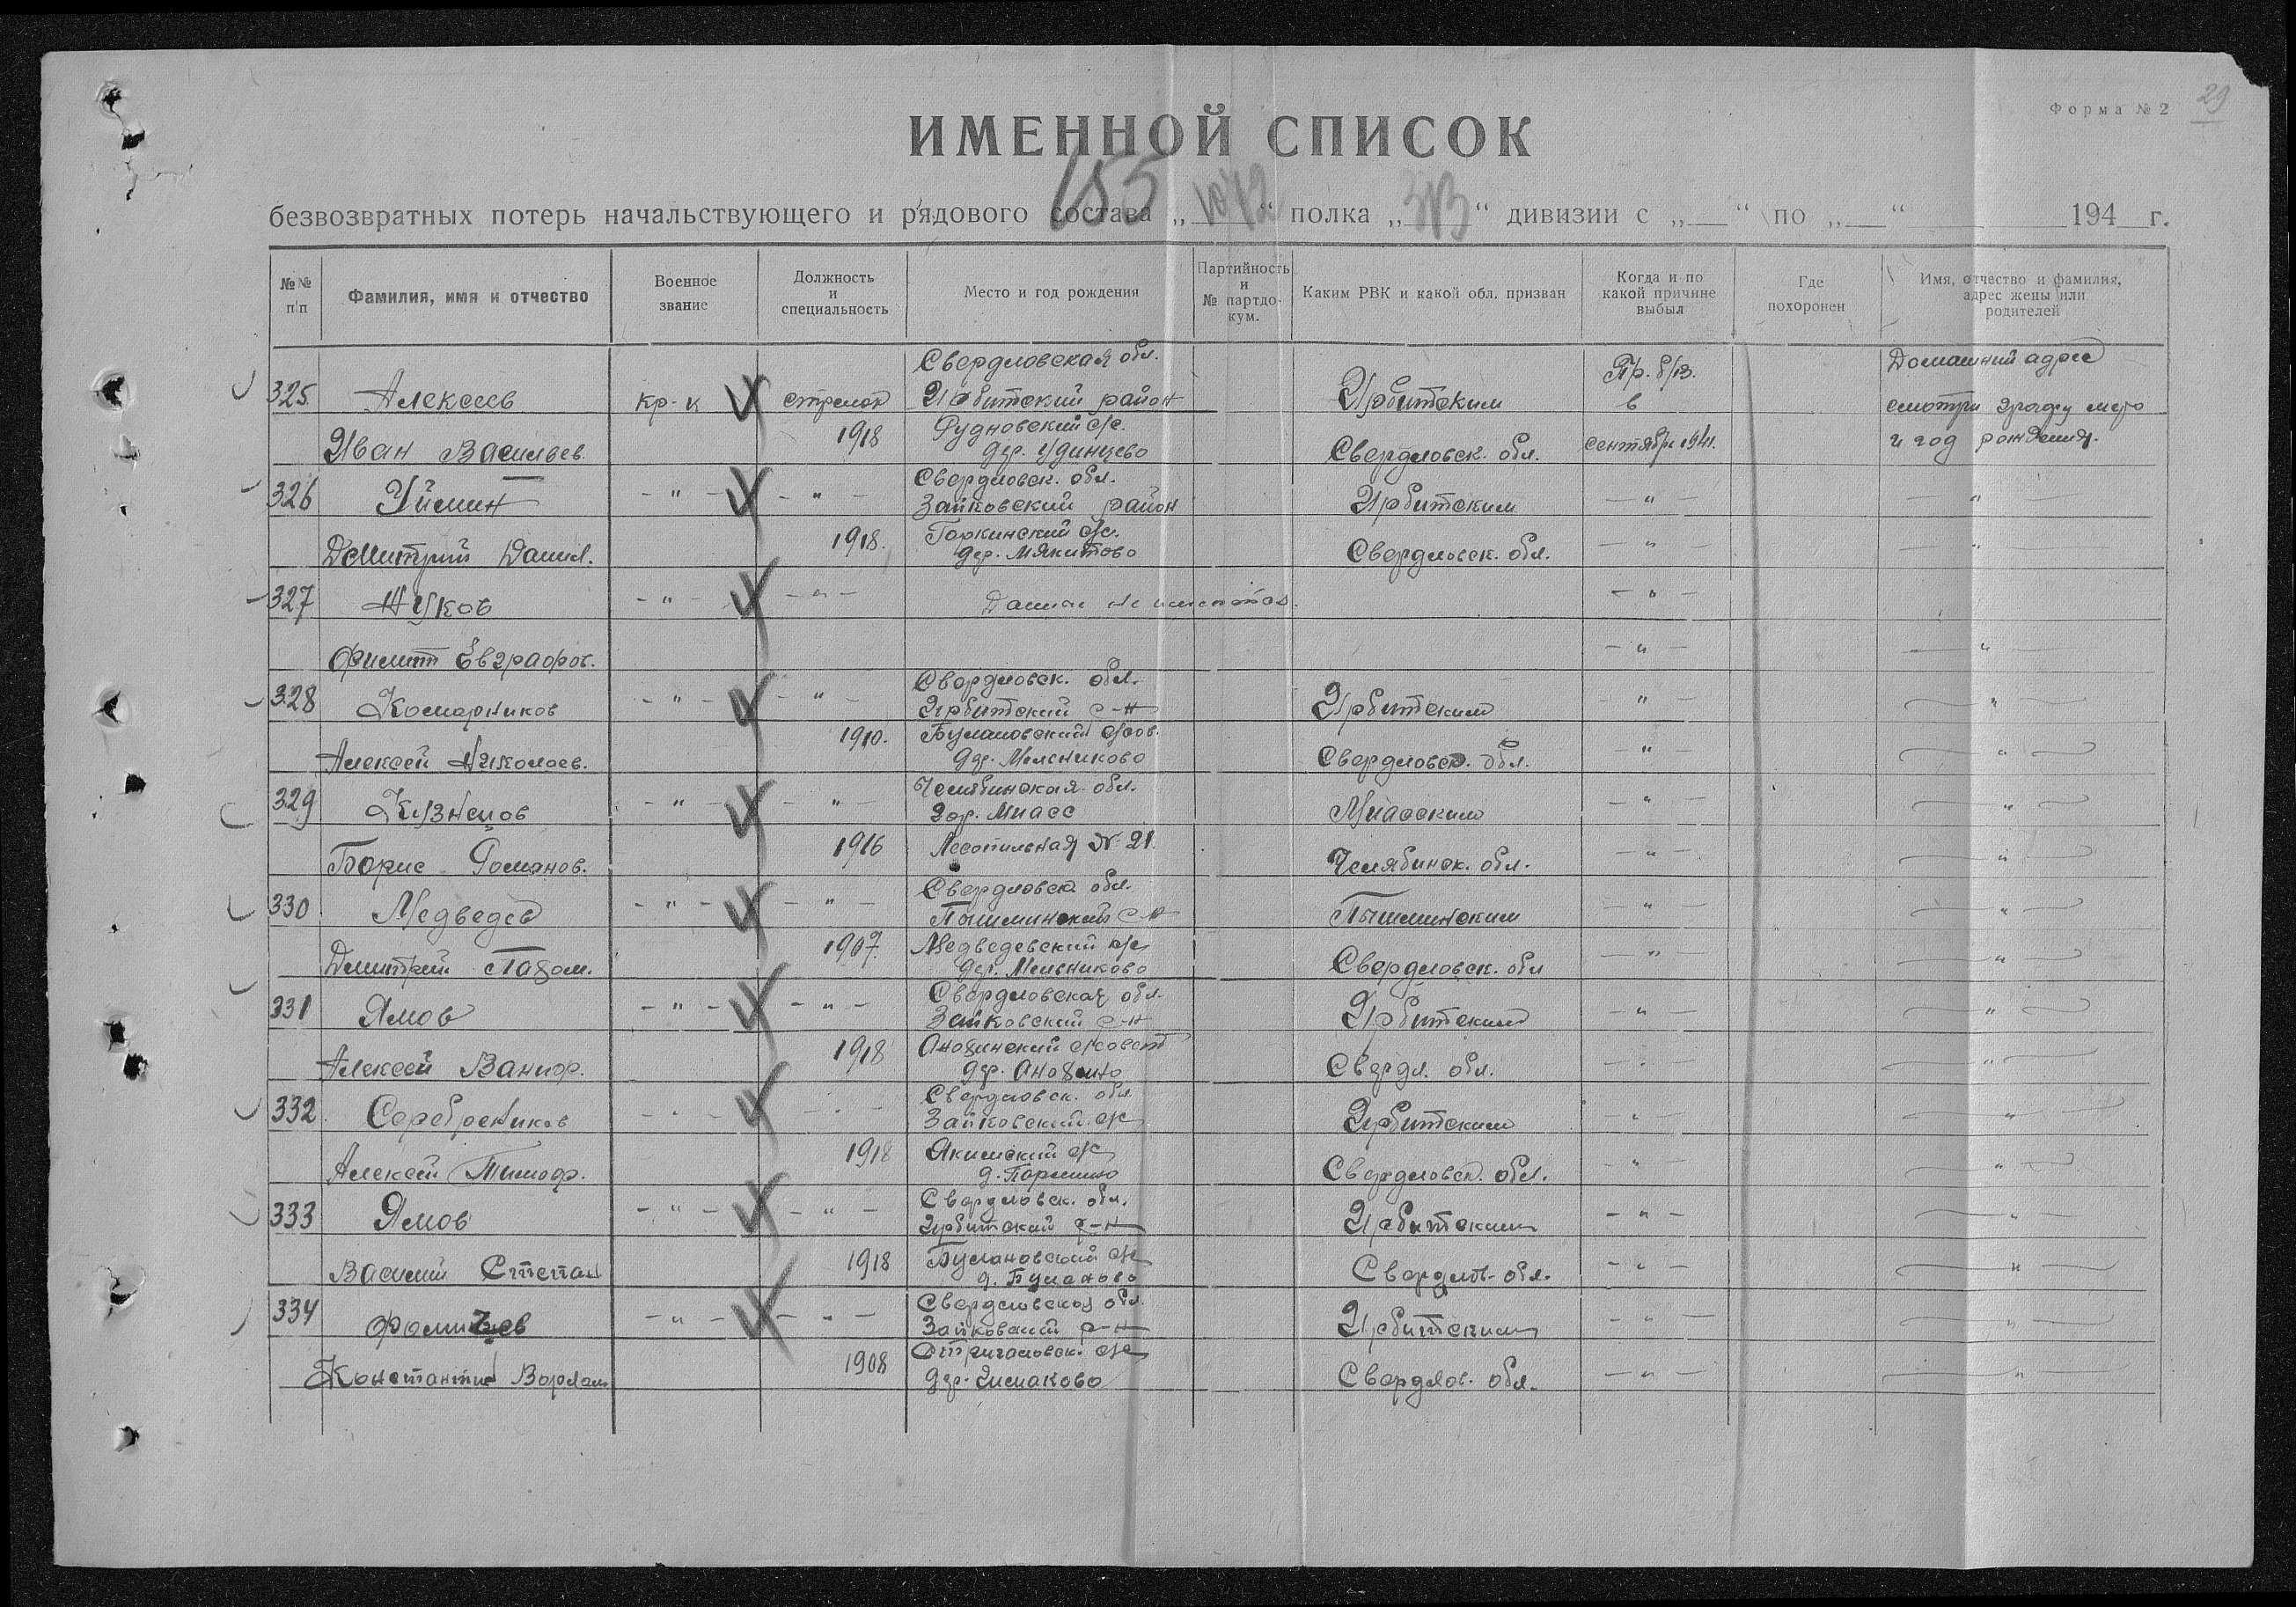 Форма № 2
29
ИМЕННОЙ СПИСОК
155
безвозвратных потерь начальствующего и рядового состава „1072“ полка „313“ дивизии с „__“ по „__“ 194__ г.
№№ п/п
Фамилия, имя и отчество
Военное звание
Должность и специальность
Место и год рождения
Партийность и № партдокум.
Каким РВК и какой обл. призван
Когда и по какой причине выбыл
Где похоронен
Имя, отчество и фамилия, адрес жены или родителей
Свердловская обл. Пр. б/в. Домашний адрес
325. Алексеев кр-ц стрелок Ирбитский район Ирбитским в смотри графу место
Иван Васильев. 1918 Рудновский с/с. дер. Удинцево Свердловск. обл. сентябре 1941. и год рождения.
Свердловск. обл.
326 Уймин - " - - " - Зайковский район Ирбитским - " - "
Дмитрий Данил. 1918. Горкинский с/с. дер. Мякитово Свердловск. обл. - " - "
327 Жуков - " - - " - Данные не имеются. - " -
Филипп Евграфов. - " - "
Свердловск. обл.
328 Комарников - " - - " - Ирбитский р-н Ирбитским - " - "
Алексей Николаев. 1910. Булановский с/сов. дер. Мельниково Свердловск. обл. - " - "
Челябинская обл.
329 Кузнецов - " - - " - гор. Миасс Миасским - " - "
Борис Романов. 1916 Лесопильная № 21. Челябинск. обл. - " - "
Свердловск. обл.
330 Медведев - " - - " - Пышминский р-н Пышминским - " - "
Дмитрий Пахом. 1907. Медведевский с/с дер. Мельниково Свердловск. обл - " - "
Свердловская обл.
331 Ямов - " - - " - Зайковский р-н Ирбитским - " - "
Алексей Ваниф. 1918 Анохинский с/совет дер. Анохино Свердл. обл. - " - "
Свердловск. обл
332 Серебреников - " - - " - Зайковский с/с Ирбитским - " - "
Алексей Тимоф. 1918 Якшинский с/с д. Паршино Свердловск. обл. - " - "
Свердловск. обл.
333 Ямов - " - - " - Ирбитский р-н Ирбитским - " - "
Василий Степан 1918 Булановский с/с д. Буланово Свердлов. обл. - " - "
Свердловская обл.
334 Фомичев - " - - " - Зайковский р-н Ирбитским - " - "
Константин Варлам 1908 Стригановск. с/с дер. Симаково Свердлов. обл. - " - "